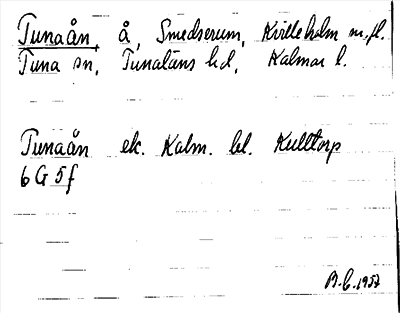 Tunaån, å, Smedserum, Kvilleholm m.fl.
Tuna sn, Tunaläns hd, Kalmar l.
Tunaån ek. Kalm. bl. Kulltorp
6G5f
B.C. 1957